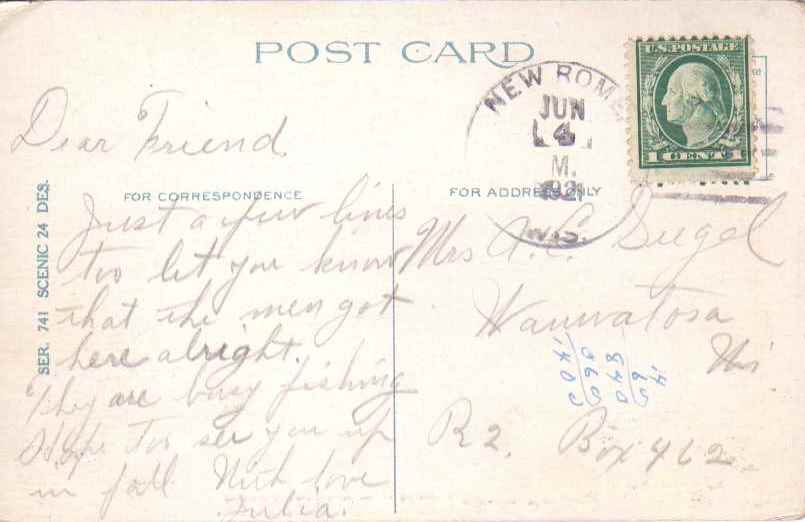 POST CARD
U.S. POSTAGE
1 CENT
NEW ROME
JUN
4
M.
1921
WIS.
Dear Friend
FOR CORRESPONDENCE
FOR ADDRESS ONLY
SER. 741 SCENIC 24 DES.
Just a few lines
too let you know
that the men got
here alright.
They are busy fishing
Hope Too see you up
in fall With love
Julia.
Mrs A. C. Siegel
Wauwatosa
Wis
R2. Box 462